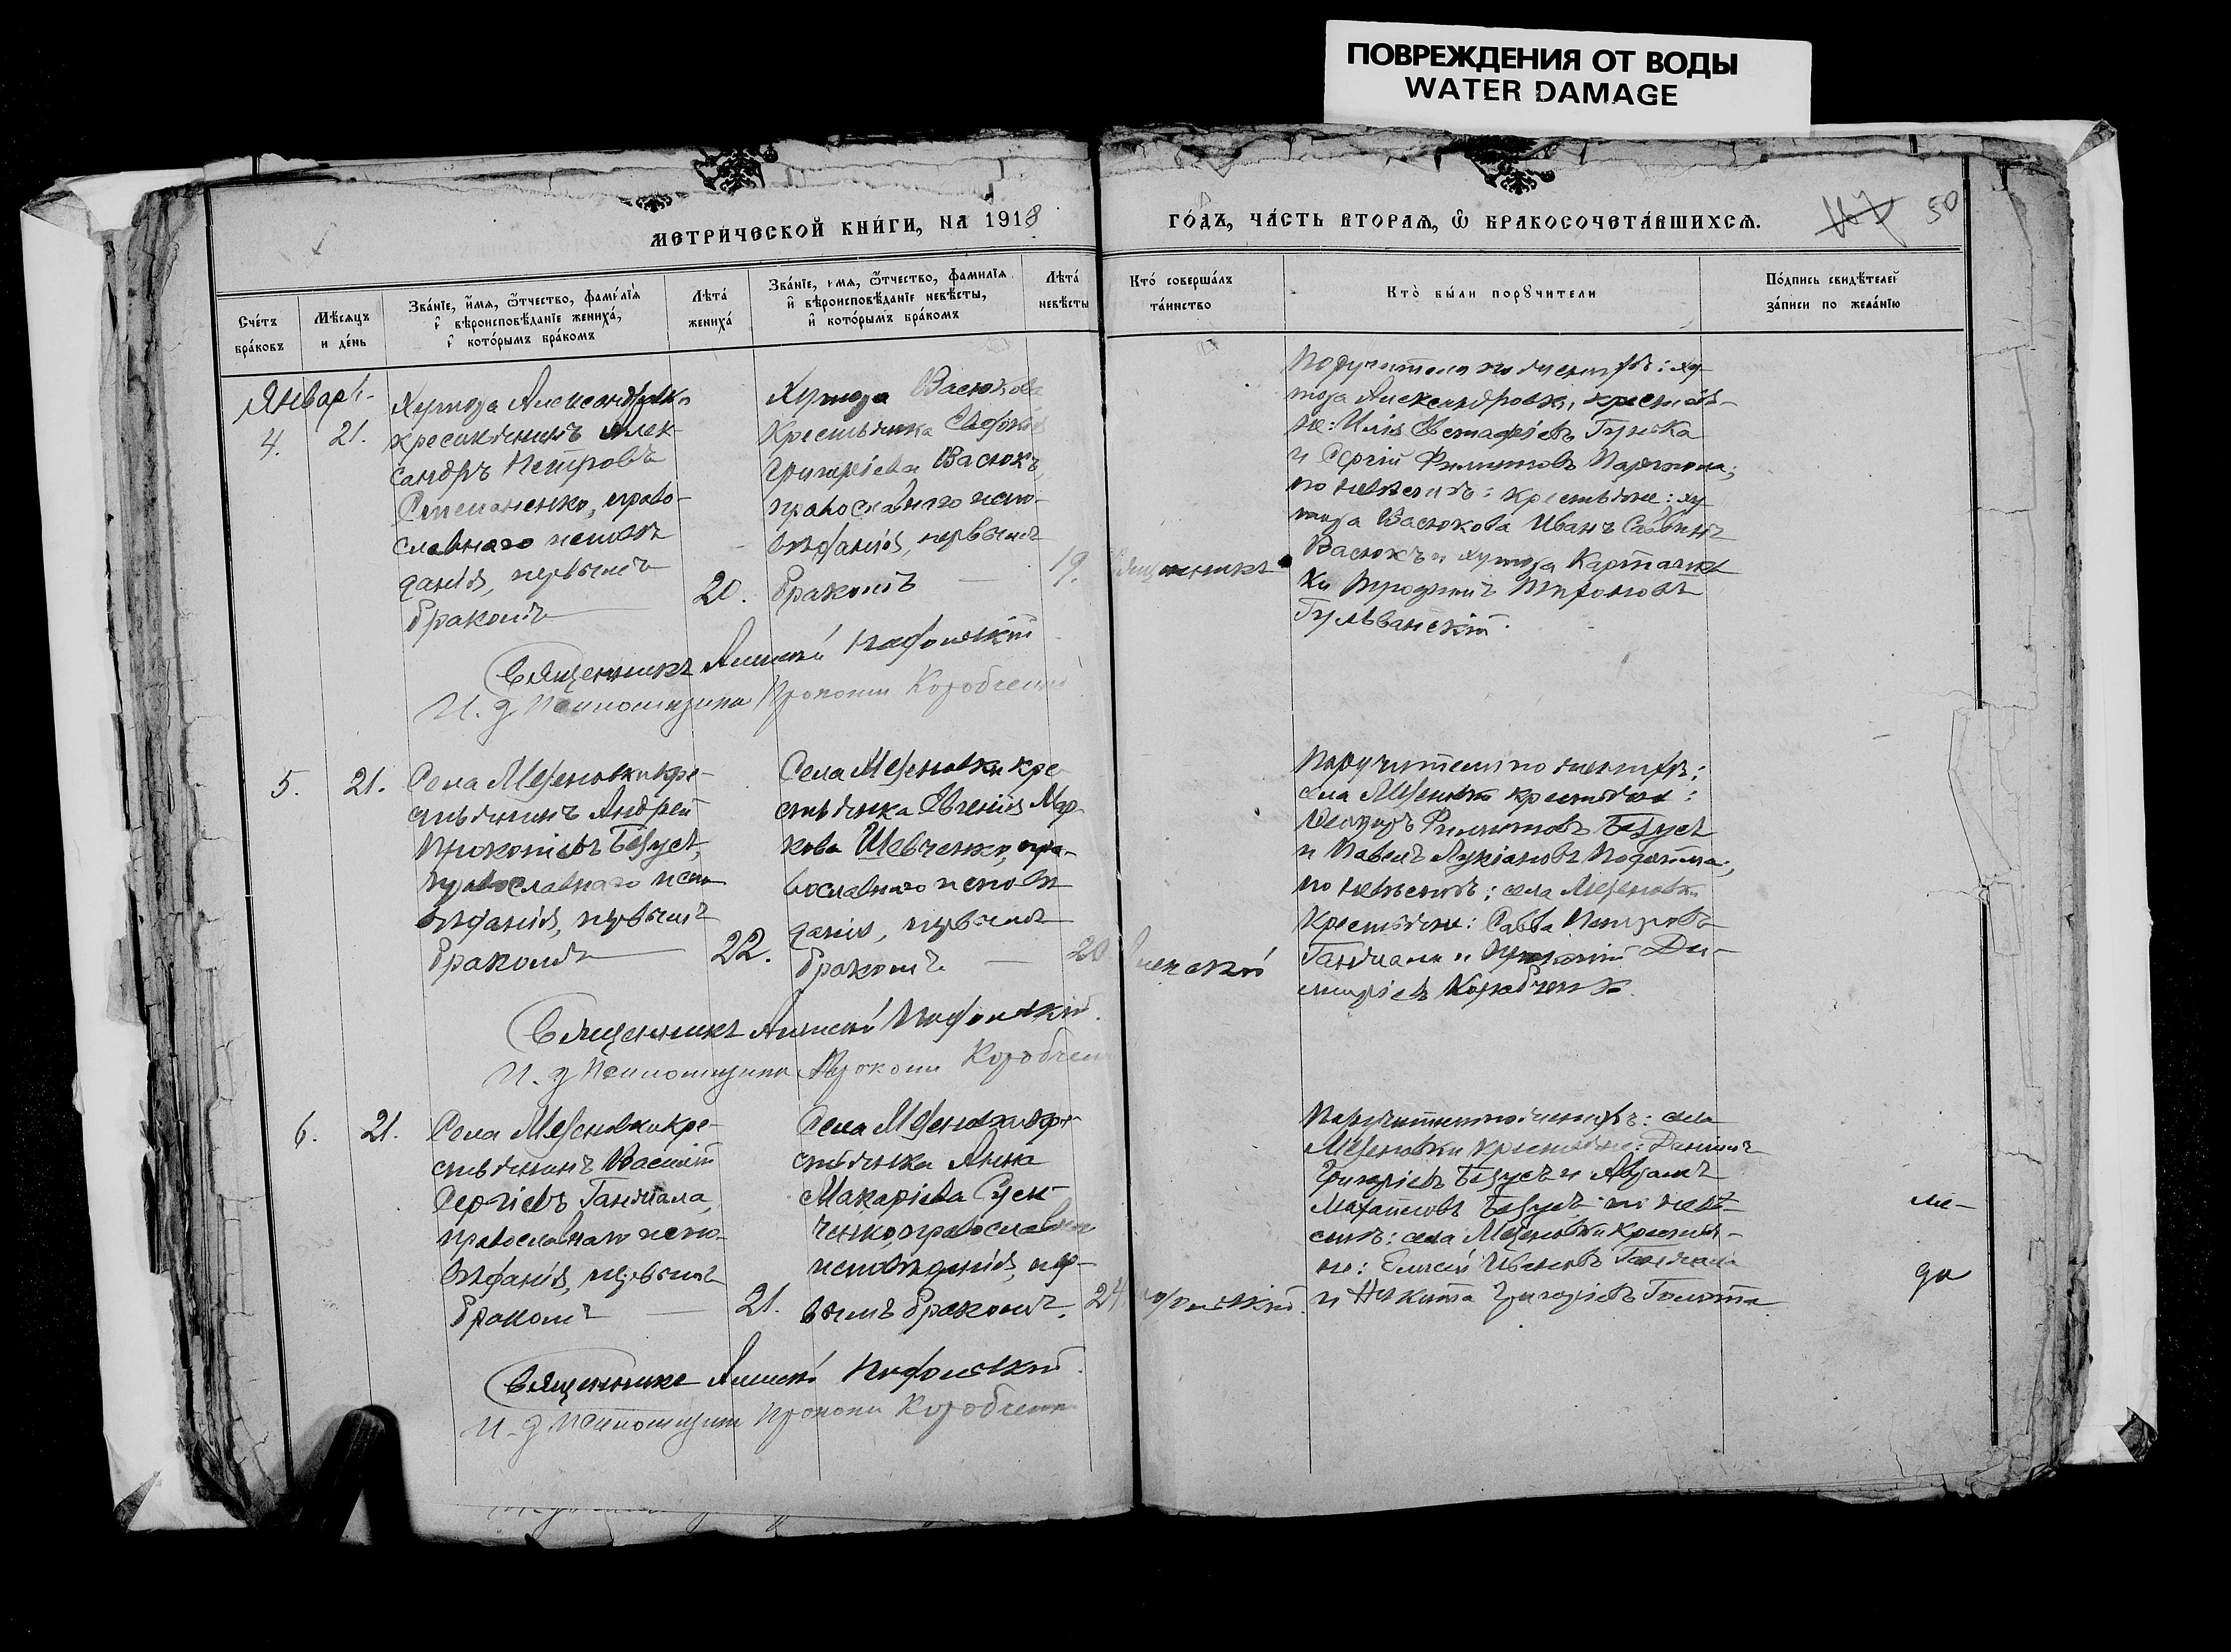 ПОВРЕЖДЕНИЯ ОТ ВОДЫ
WATER DAMAGE
МЕТРИ́ЧЕСКОЙ КНИ́ГИ, НА 1918
ГО́ДЪ, ЧА́СТЬ ВТОРАѦ, Ѡ҆ БРАКОСОЧЕТА́ВШИХСѦ.
50
Сче́тъ бра́ковъ
Мѣ́сяцъ и де́нь
Зва́нїе, и҆́мя, ѻ҆́тчество, фами́лїя
и҆ вѣроисповѣ́данїе жениха́,
и҆ кото́рымъ бра́комъ
Лѣта́ жениха́
Зва́нїе, и҆мя, ѻ҆́тчество, фамилїя
и҆ вѣроисповѣ́данїе невѣ́сты,
и҆ кото́рымъ бра́комъ
Лѣта́ невѣ́сты
Кто́ соверша́лъ та́инство
Кто̀ бы́ли порꙋчители
По́дпись свидѣ́телей за́писи по жела́нїю
Январь
4. 21.
Хутора Александровки
крестьянинъ Алек-
сандръ Петровъ
Степаненко, право-
славнаго исповѣ
данія, первымъ
бракомъ
20.
Хутора Васюкова
крестьянка
Григоріева Васюкъ,
православнаго испо-
вѣданія, первымъ
бракомъ
19.
Священникъ
Поручители по женихѣ: ху
тора Александровки, крестья-
не: Илія Гунька
и Сергій Филипповъ
по невѣстѣ: крестьяне: ху
тора Васюкова Иванъ Саввинъ
Васюкъ и хутора
Священникъ Алексій
И. д. Псаломщика Прокопій Коробченко
5. 21.
Села Мезеновки кре-
стьянинъ Андрей
Прокопіевъ Безусъ,
православнаго испо
вѣданія, первымъ
бракомъ
22.
Села Мезеновки кре
стьянка Евгенія Мар
кова Шевченко, пра-
вославнаго исповѣ
данія, первымъ
бракомъ
20.
Алексій
Поручители по женихѣ:
села Мезеновки крестьяне:
Филипповъ Безусъ
и Павелъ Лукіановъ
по невѣстѣ: села Мезеновки
крестьяне: Савва Петровъ
Ганджала и Ди-
митріевъ Коробченко.
Священникъ Алексій
И. д. Псаломщика Прокопій Коробченко
6. 21.
Села Мезеновки кре-
стьянинъ Василій
Сергіевъ Ганджала,
православнаго испо-
вѣданія, первымъ
бракомъ
21.
Села Мезеновки кре
стьянка Анна
Макаріева Суп-
ченко, православнаго
исповѣданія, пер-
вымъ бракомъ.
24
Поручители по женихѣ: села
Мезеновки крестьяне: Даніилъ
Григоріевъ Безусъ и Авраамъ
Безусъ, по невѣ-
стѣ: села Мезеновки крестья-
не: Елисей Ивановъ Ганджала
и Никита Григоріевъ
Священникъ Алексій
И. д. Псаломщика Прокопій Коробченко